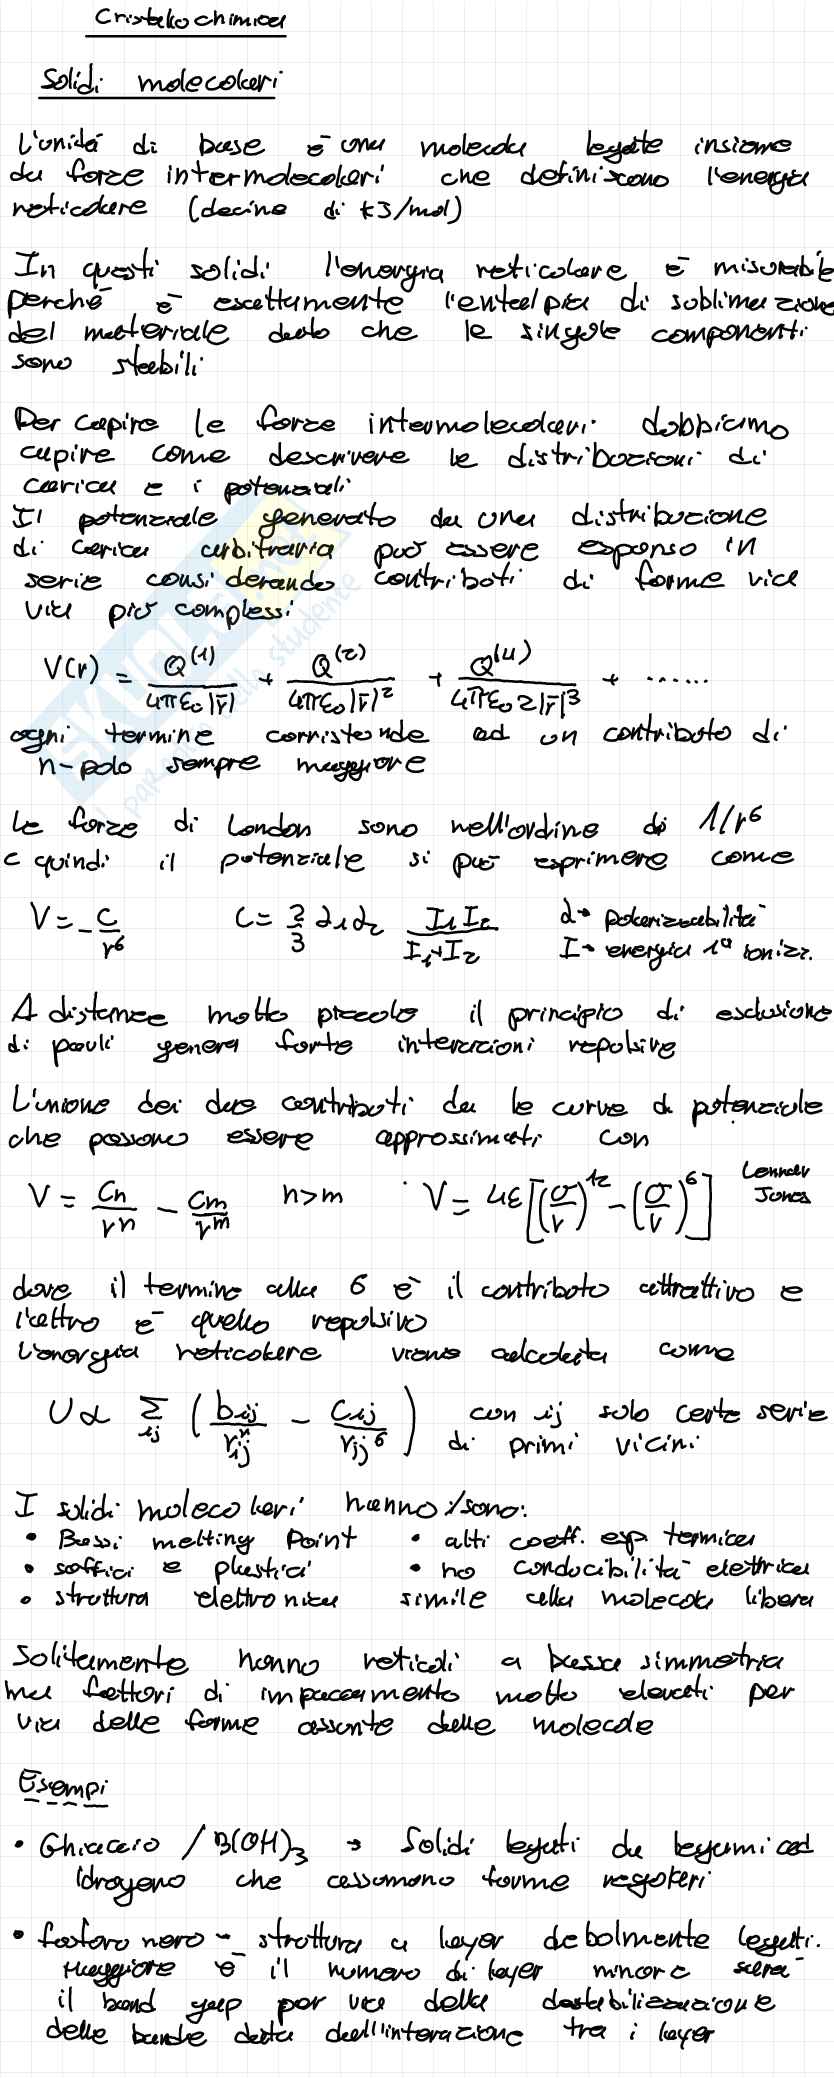 Cristallochimica
Solidi molecolari
L'unità di base è una molecola legate insieme
da forze intermolecolari che definiscono l'energia
reticolare (decine di kJ/mol)
In questi solidi l'energia reticolare è misurabile
perché è esattamente l'entalpia di sublimazione
del materiale dato che le singole componenti
sono stabili
Per capire le forze intermolecolari dobbiamo
capire come descrivere le distribuzioni di
carica e i potenziali
Il potenziale generato da una distribuzione
di carica arbitraria può essere espanso in
serie considerando contributi di forme via
via più complessi
V(r) = Q⁽¹⁾/4πε₀|r̄| + Q⁽²⁾/4πε₀|r̄|² + Q⁽⁴⁾/4πε₀2|r̄|³ + ......
ogni termine corrisponde ad un contributo di
n-polo sempre maggiore
Le forze di London sono nell'ordine di 1/r⁶
e quindi il potenziale si può esprimere come
V = -C/r⁶ C = 2/3 α₁α₂ I₁I₂/I₁+I₂ α→ polarizzabilità
I→ energia 1ª ionizz.
A distanze molto piccole il principio di esclusione
di pauli genera forte interazioni repulsive
L'unione dei due contributi da le curve di potenziale
che possono essere approssimati con
V = Cn/rⁿ - Cm/rᵐ n>m V = 4ε[(σ/r)¹² - (σ/r)⁶] Lennar Jones
dove il termine alla 6 è il contributo attrattivo e
l'altro è quello repulsivo
L'energia reticolare viene calcolata come
U α Σij (bij/rijⁿ - Cij/rij⁶) con ij solo certe serie
di primi vicini
I solidi molecolari hanno/sono:
• Bassi melting point • alti coeff. esp. termica
• soffici e plastici • no conducibilità elettrica
• struttura elettronica simile alla molecola libera
Solitamente hanno reticoli a bassa simmetria
ma fattori di impaccamento molto elevati per
via delle forme assunte dalle molecole
Esempi
• Ghiaccio / B(OH)₃ → Solidi legati da legami ad
idrogeno che assumono forme regolari
• fosforo nero - struttura a layer debolmente legati.
Maggiore è il numero di layer minore sarà
il band gap per via della destabilizzazione
delle bande data dall'interazione tra i layer
SKUOLA.net
il paradiso dello studente